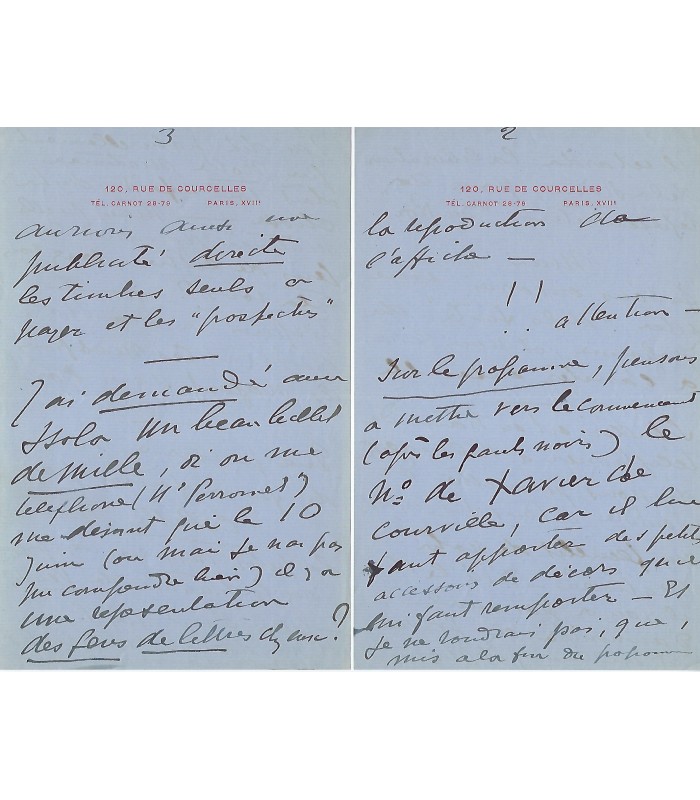 3
120, RUE DE COURCELLES
TÉL. CARNOT 28-79 PARIS, XVIIᵉ
aurions aussi une
publicité directe
les timbres seuls a
payer et les "prospectus"
J'ai demandé aux
Isola un beau billet
de mille, et on me
telephone (Mr Perronet)
me disant que le 10
juin (ou mai je n'ai pas
pu comprendre bien) il y a
une representation
des gens de lettres chez eux?
2
120, RUE DE COURCELLES
TÉL. CARNOT 28-79 PARIS, XVIIᵉ
la reproduction de
l'affiche —
!!
attention —
Sur le programme, pensons
a mettre vers le commencement
(après les gants noirs) le
No de Xavier de
Courville, car il lui
faut apporter des petits
accessoirs de décors qu'il
lui faut remporter — Et
je ne voudrais pas, que,
mis a la fin du programme